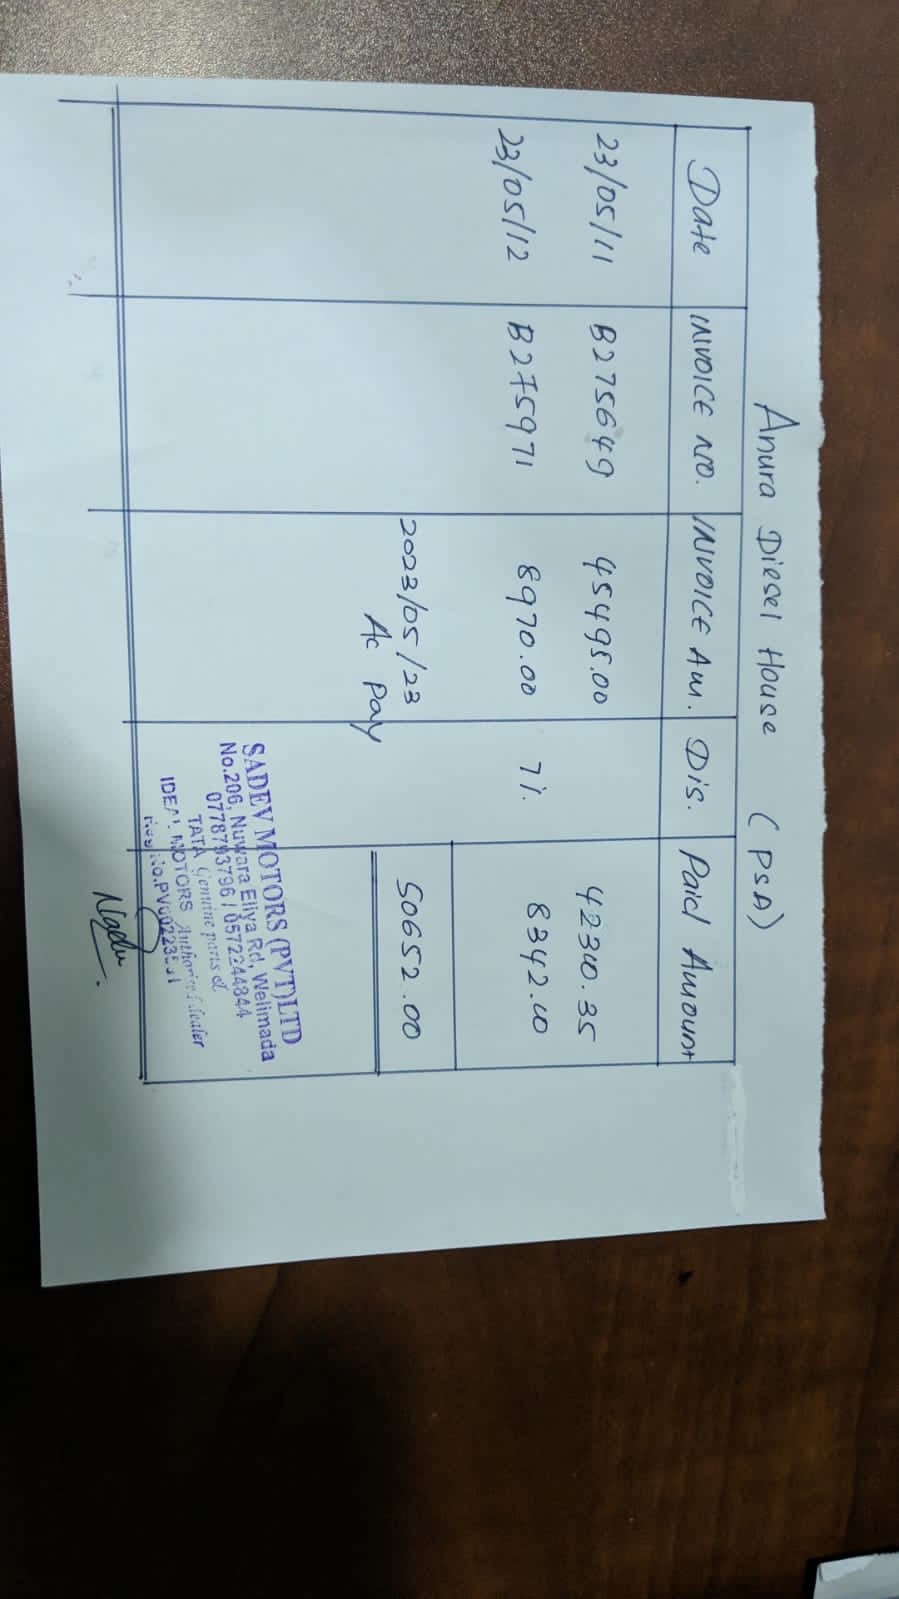 Anura Diesel House (PSA)
Date INVOICE NO. INVOICE AM. Dis. Paid Amount
23/05/11 B275649 45495.00 42310.35
23/05/12 B275971 8970.00 7% 8342.00
2023/05/23 50652.00
Ac Pay
SADEV MOTORS (PVT)LTD
No.206, Nuwara Eliya Rd, Welimada
0778793796 / 0572244844
TATA Genuine parts of
MOTORS Authorized dealer